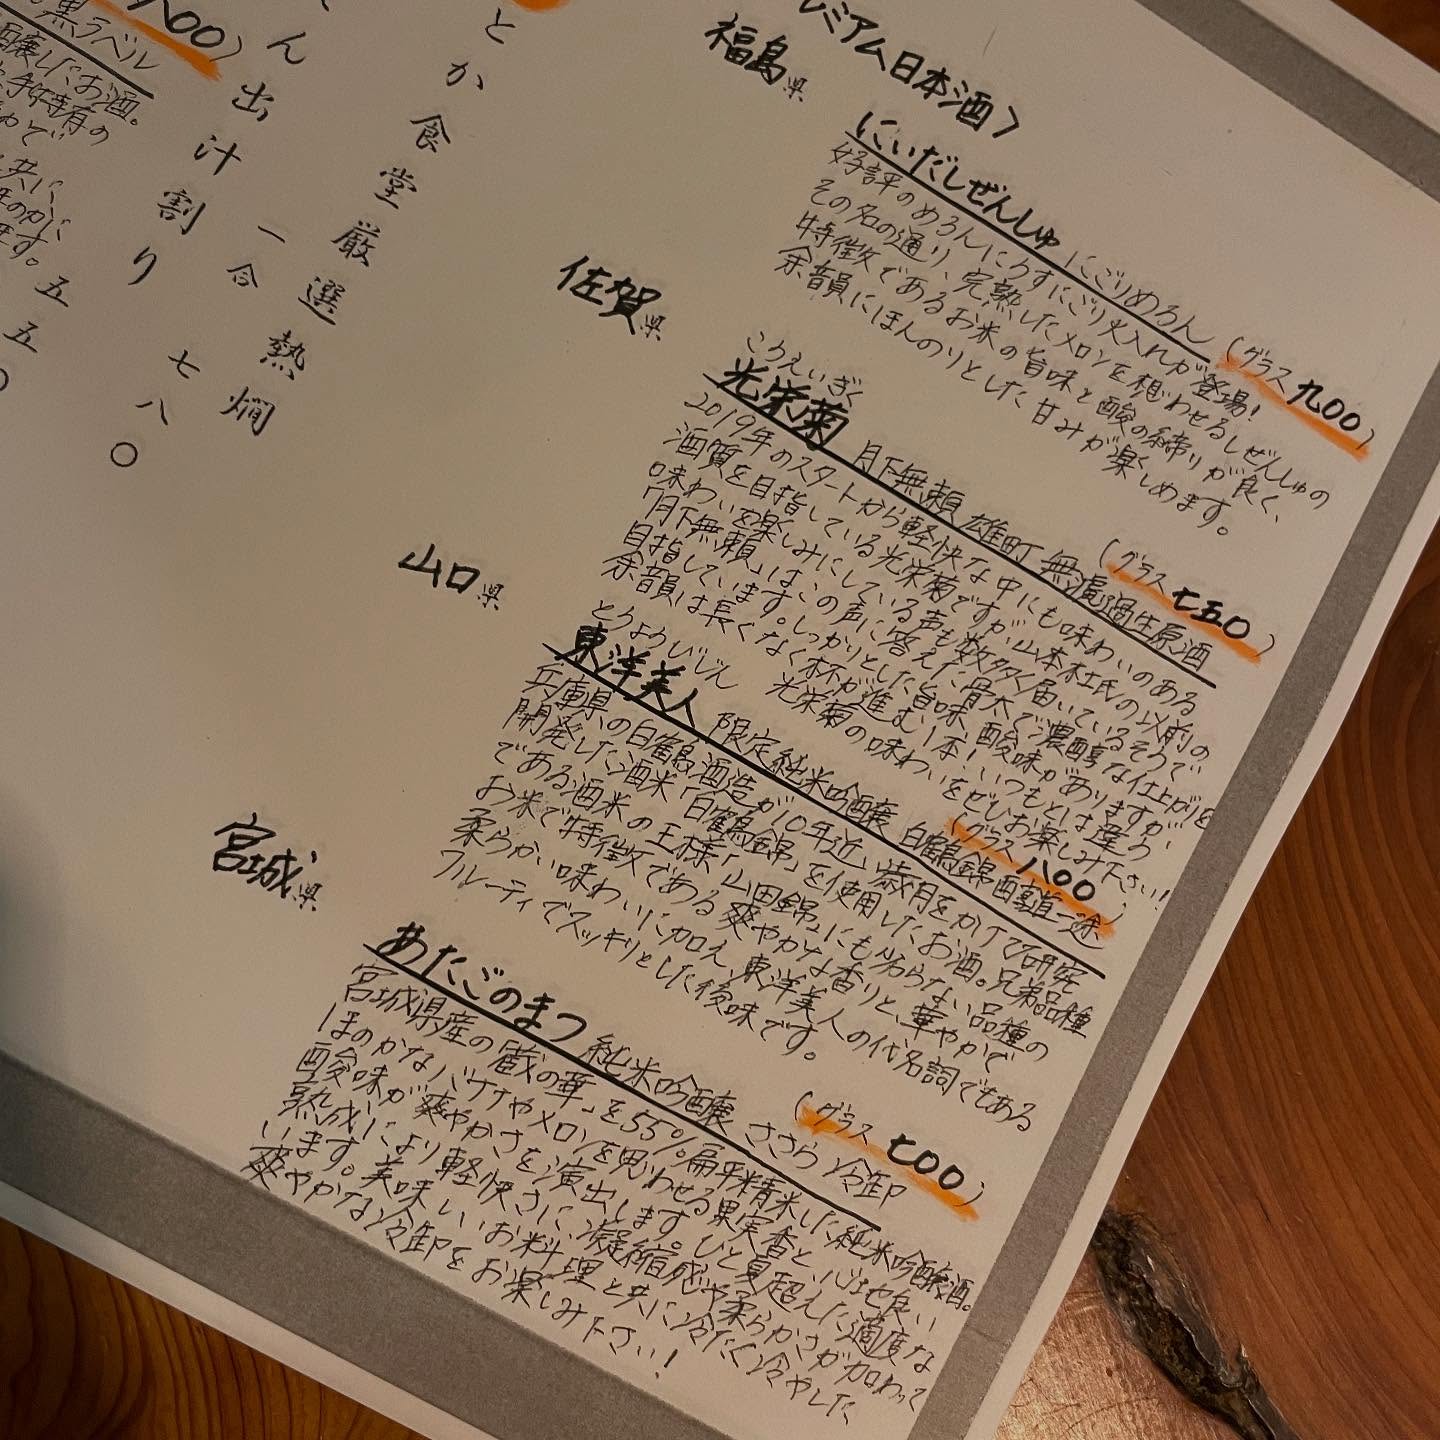 レミアム日本酒〉
福島県
にいだしぜんしゅ にごりめろん (グラス 九〇〇)
好評のめろんにうすにごり火入れが登場!
その名の通り、完熟したメロンを想わせるしぜんしゅの
特徴であるお米の旨味と酸の締りが良く、
余韻にほんのりとした甘みが楽しめます。
佐賀県
こうえいぎく
光栄菊 月下無頼 雄町 無濾過生原酒 (グラス 七五〇)
2019年のスタートから軽快な中にも味わいのある
酒質を目指している光栄菊ですが山本杜氏の以前の
味わいを楽しみにしている声も数多く届いているそうで
「月下無頼」はこの声に答えた骨太で濃醇な仕上がりを
目指しています。しっかりとした旨味、酸味がありますが、
余韻は長くなく杯が進む1本!いつもとは違う
光栄菊の味わいをぜひお楽しみ下さい!
山口県
とうようびじん
東洋美人 限定純米吟醸 白鶴錦 醇道一途 (グラス 八〇〇)
兵庫県の白鶴酒造が10年近い歳月をかけて研究
開発した酒米「白鶴錦」を使用したお酒。兄弟品種
である酒米の王様「山田錦」にも劣らない品種の
お米で特徴である爽やかな香りと、華やかで
柔らかい味わいに加え、東洋美人の代名詞でもある
フルーティでスッキリとした後味です。
宮城県
あたごのまつ 純米吟醸 ささら 冷卸 (グラス 七〇〇)
宮城県産の「蔵の華」を55%扁平精米した純米吟醸酒。
ほのかなバナナやメロンを思わせる果実香と心地良い
酸味が爽やかさを演出します。ひと夏超えた適度な
熟成により軽快さに凝縮感や柔らかさが加わって
います。美味しいお料理と共に冷たく冷やした
爽やかな冷卸をお楽しみ下さい!
とか食堂厳選熱燗
ん出汁割り 一合 七八〇
八〇〇)
黒ラベル
醸したお酒。
特有の
わで
共に
ほのかに
ます。
五五〇